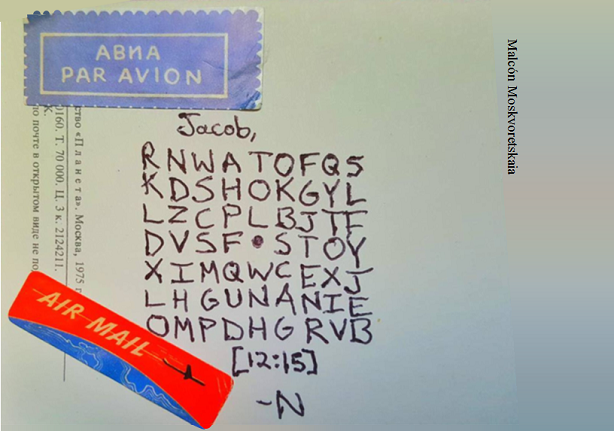 АВИА
PAR AVION
Malcón Moskvoretskaia
Jacob,
RNWATOFQS
KDSHOKGYL
LZCPLBJTF
DVSF•STOY
XIMQWCEXJ
LHGUNANIE
OMPDHGRVB
[12:15]
-N
«Планета». Москва, 1975
Т. 70 000. Ц. 3 к. 2124211.
почте в открытом виде не
AIR MAIL